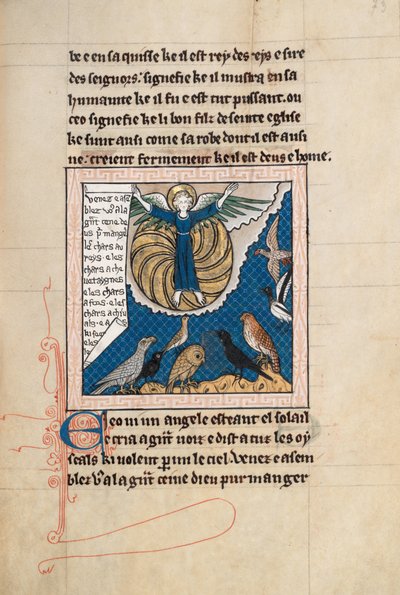 be e en sa quisse ke il est rey des reys e sire
des seignors. signefie ke il mustra en sa
humanite ke il fu e est tut pussant. ou
ceo signefie ke li bon fiz de seinte eglise
ke sunt ausi come sa robe dont il est ausi
ne. creient fermement ke il est deus e home.
venez e asem
blez v9 a la
g̃nt cene de
us p mang
les chars au
reys. e les
chars a che
e les chars
a fous. e les
chars a chiu
Ceo in un angele esteant el solail
e cria a g̃nt voiz e dist a tuz les oy
seals ki volent p mi le ciel. Venez e asem
blez v9 a la g̃nt ceine dieu pur manger